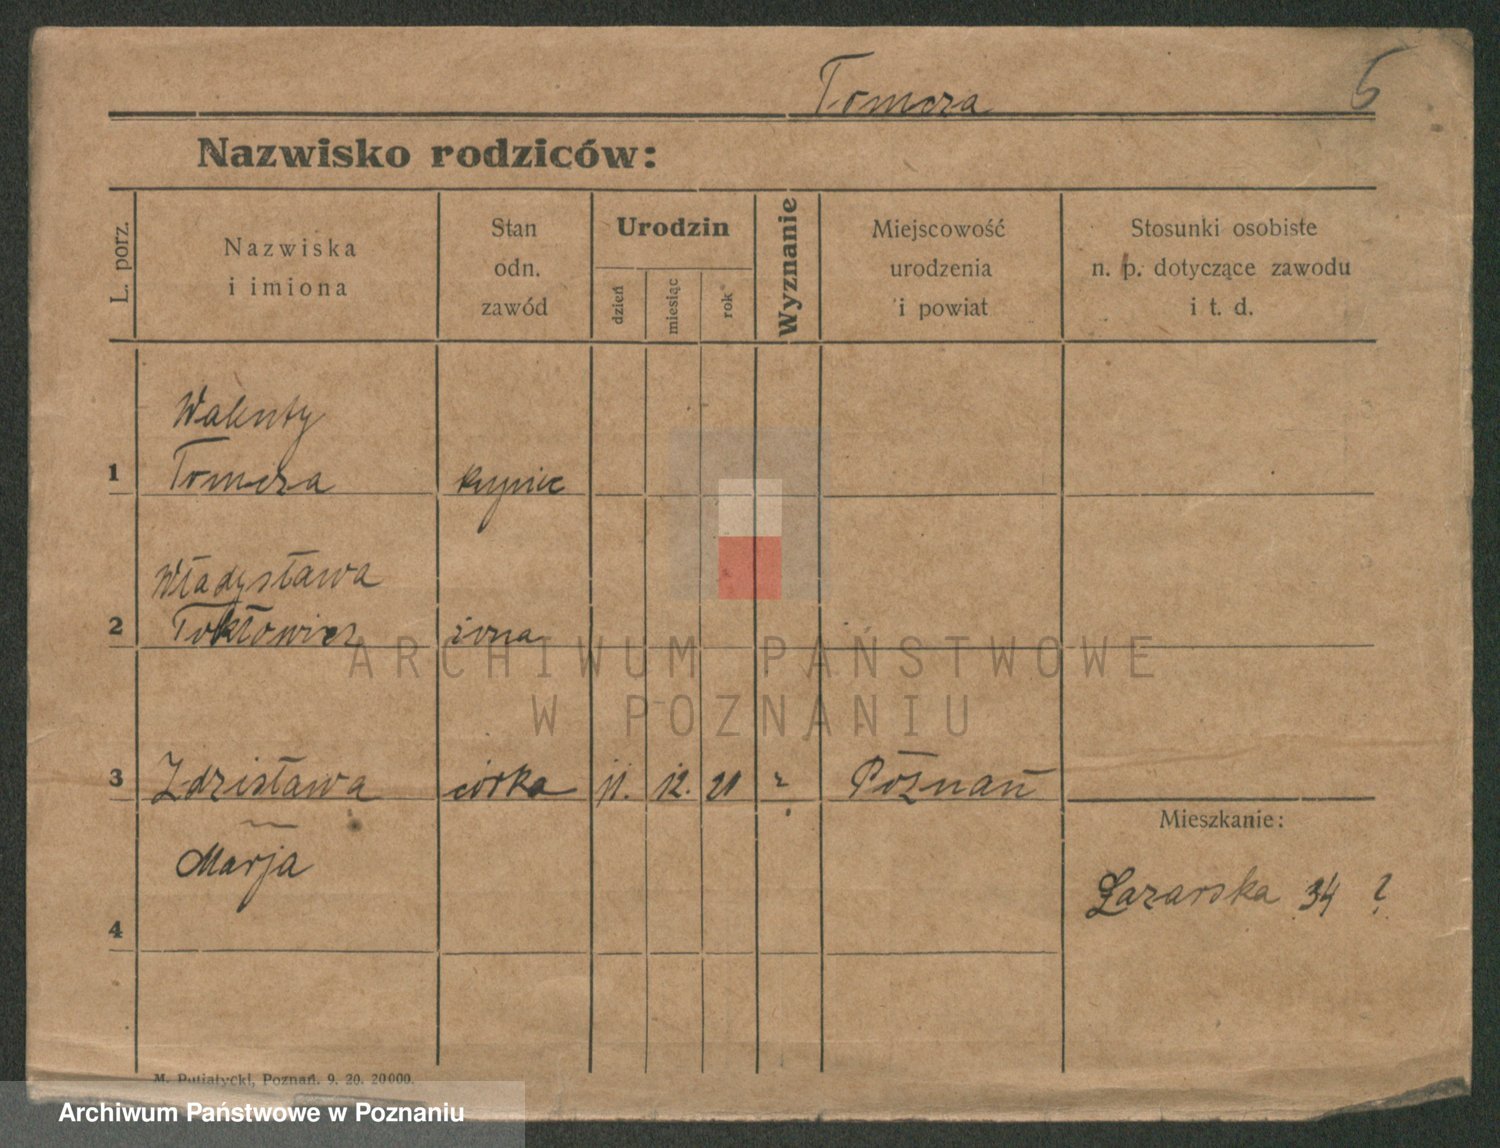 Tomcza 5
Nazwisko rodziców:
L. porz.
Nazwiska
i imiona
Stan
odn.
zawód
Urodzin
dzień
miesiąc
rok
Wyznanie
Miejscowość
urodzenia
i powiat
Stosunki osobiste
n. p. dotyczące zawodu
i t. d.
Walenty
1 Tomcza kupiec
Władysława
2 żona
3 Zdzisława córka 11. 12. 21 ? Poznań
Marja
4
Mieszkanie:
Łazarska 34 ?
M. Putiatycki, Poznań. 9. 20. 20000.
ARCHIWUM PAŃSTWOWE
W POZNANIU
Archiwum Państwowe w Poznaniu